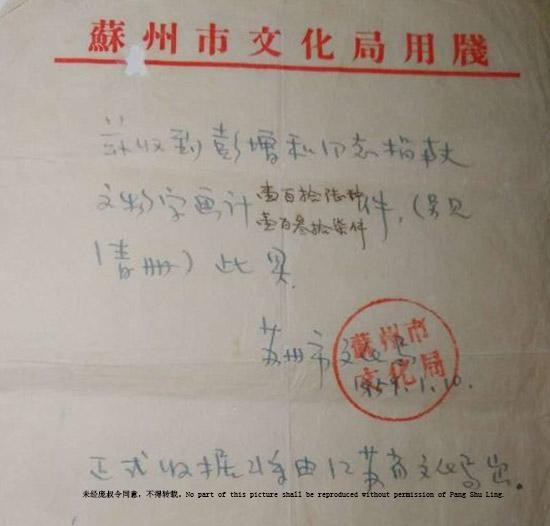 蘇州市文化局用牋
兹收到彭增和同志捐献
文物字画计壹百拾 种
壹百叁拾柒件
件,(另见
清册)此具.
苏州市文化局
蘇州市
文化局
1959.1.10.
正式收据将由江苏省文化局出。
未经庞叔令同意,不得转载。No part of this picture shall be reproduced without permission of Pang Shu Ling.